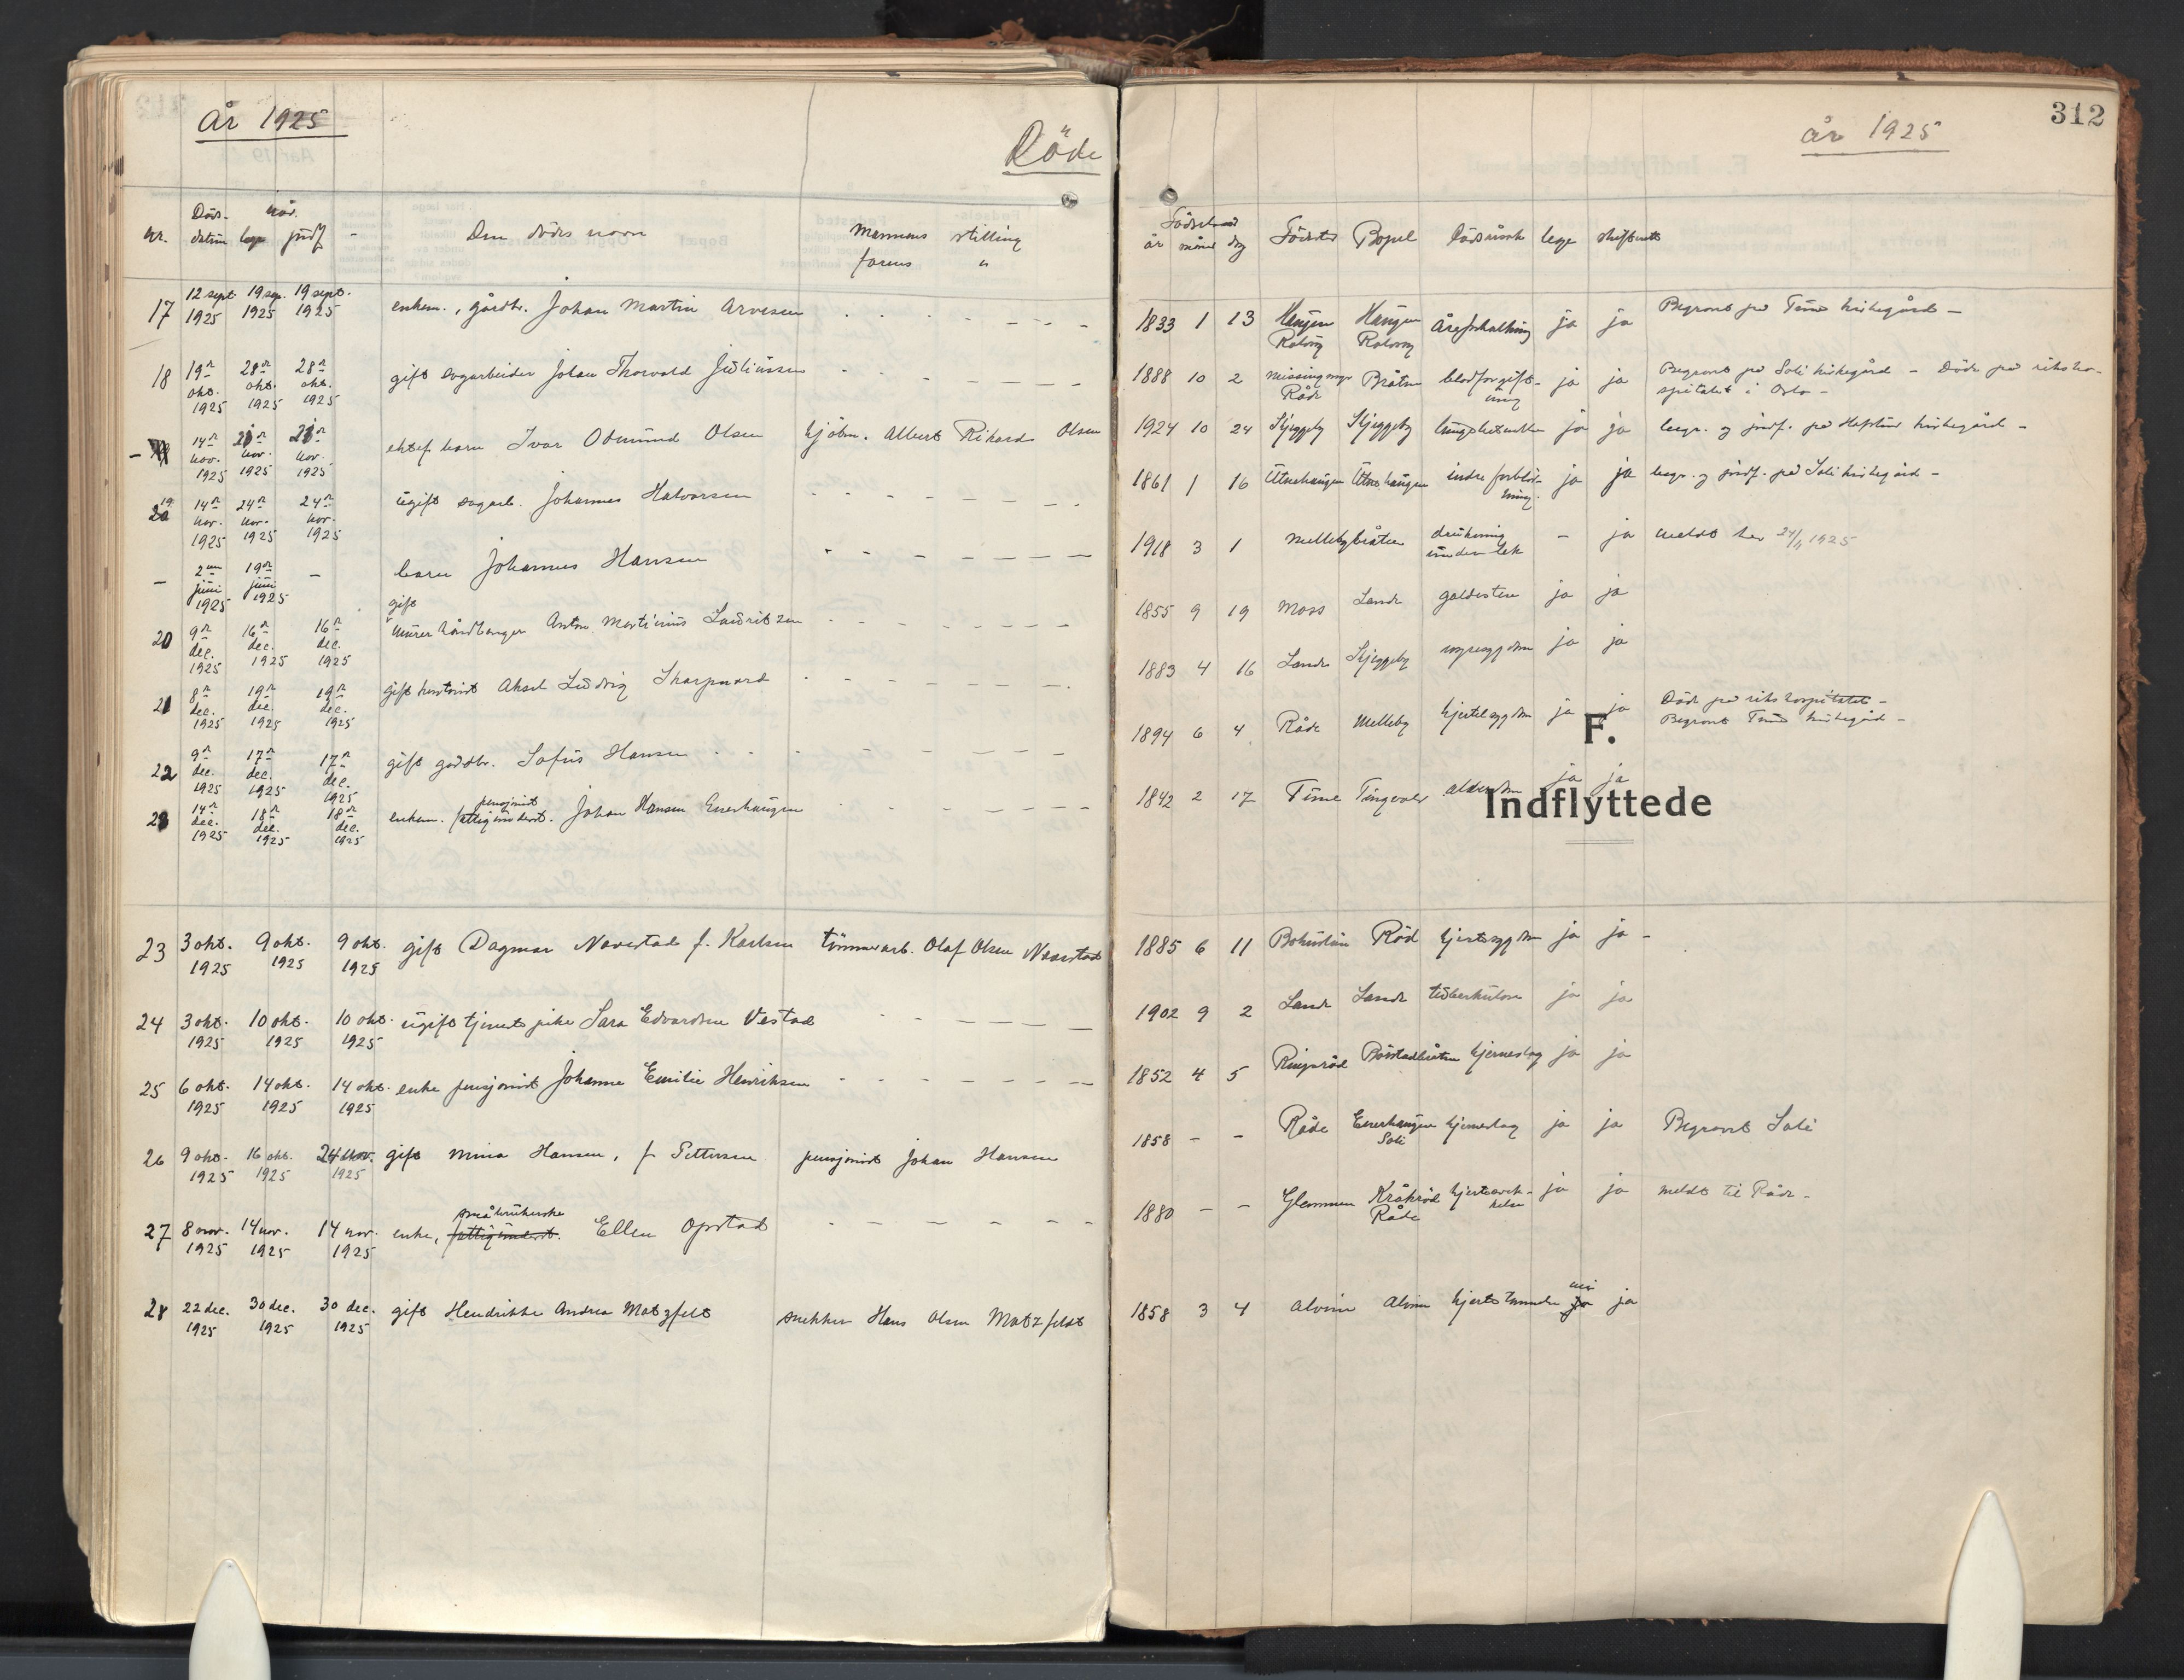 År 1925
Döde
Nr.
Döds- når.
datum begr jordf -
Den dödes navn
Mannens stilling
farens "
17 12 sept. 19 sep. 19 sept. enkem., gårdbr. Johan Martin Arvesen
1925 1925 1925
18 19de 28de 28de gift sagarbeider Johan Thorvald Juliussen
okt. okt. okt.
1925 1925 1925
- 14de ektef. barn Ivar Odmund Olsen hjólm. Albert Rikard Olsen
nov. nov. nov.
1925 1925 1925
19 14de 24de 24de ugift sagarb. Johannes Halvorsen
nov. nov. nov.
1925 1925 1925
- 2 19de - barn Johannes Hansen
juni juni
1925 1925
gift
20 9de 16de 16de murerhåndlanger Anton Martinius Lauritzen
dec. dec. dec.
1925 1925 1925
21 8de 19de 19de gift Aksel Ludvig Skarpnord
dec. dec. dec.
1925 1925 1925
22 9de 17de 17de gift gårdbr. Sofus Hansen
dec. dec. dec.
1925 1925 1925
pensjonist
14de 18de 18de enkem. fattigunderst. Johan Hansen Enerhaugen
dec. dec. dec.
1925 1925 1925
23 3 okt. 9 okt. 9 okt. gift Dagmar Navestad f. Karlsen tömmerarb. Olaf Olsen Navestad
1925 1925 1925
24 3 okt. 10 okt. 10 okt. ugift tjenestepike Sara Edvardsen Vestad
1925 1925 1925
25 6 okt. 14 okt. 14 okt. enke pensjonist Johanne Emilie Henriksen
1925 1925 1925
26 9 okt. 16 okt. 24 nov. gift Mina Hansen, f. Pettersen pensjonist Johan Hansen
1925 1925 1925
småbrukerske
27 8 nov. 14 nov. 14 nov. enke, fattigunderst. Ellen Opstad
1925 1925 1925
28 22 dec. 30 dec. 30 dec. gift Hendrikke Andrea Matzfelt snekker Hans Olsen Matzfeldt
1925 1925 1925
312
år 1925
år måned dag Födested Bopel Dödsårsak lege skifterett
1833 1 13 Haugen Haugen Åreforkalkning ja ja Begravet på Tune kirkegård -
Rolvsöy Rolvsöy
1888 10 2 Bråten blodforgift- ja ja Begravet på Soli kirkegård - Döde på riksho-
Råde ning spitalet i Oslo -
1924 10 24 Skjeggeby Skjeggeby lungebetendelse ja ja begr. og jordf. på Hafslund kirkegård -
1861 1 16 Utnehaugen Utnehaugen indre forblöd- ja ja begr. og jordf. på Soli kirkegård -
ning.
1918 3 1 Mellebybråten drukning - ja meldt her 24/11 1925
under lek
1855 9 19 Moss Lande galdesten ja ja
1883 4 16 Lande Skjeggeby nyresygdom ja ja
1894 6 4 Råde Melleby hjertesygdom ja ja Döde på rikshospitalet -
Begravet Tune kirkegård -
F.
1842 2 17 Tune Tingvold alderdom ja ja
Indflyttede
1885 6 11 Bohuslän Röd hjertesygdom ja ja -
1902 9 2 Lande Lande tuberkulose ja ja
1852 4 5 Ringsröd Börstadbråten hjerneslag ja ja
1858 - - Råde Enerhaugen hjerneslag ja ja Begravet Soli
Soli
1880 - - Glemmen Kråkröd ja ja meldt til Råde -
Råde
nei
1858 3 4 Alvim Alvim hjertelammelse ja ja